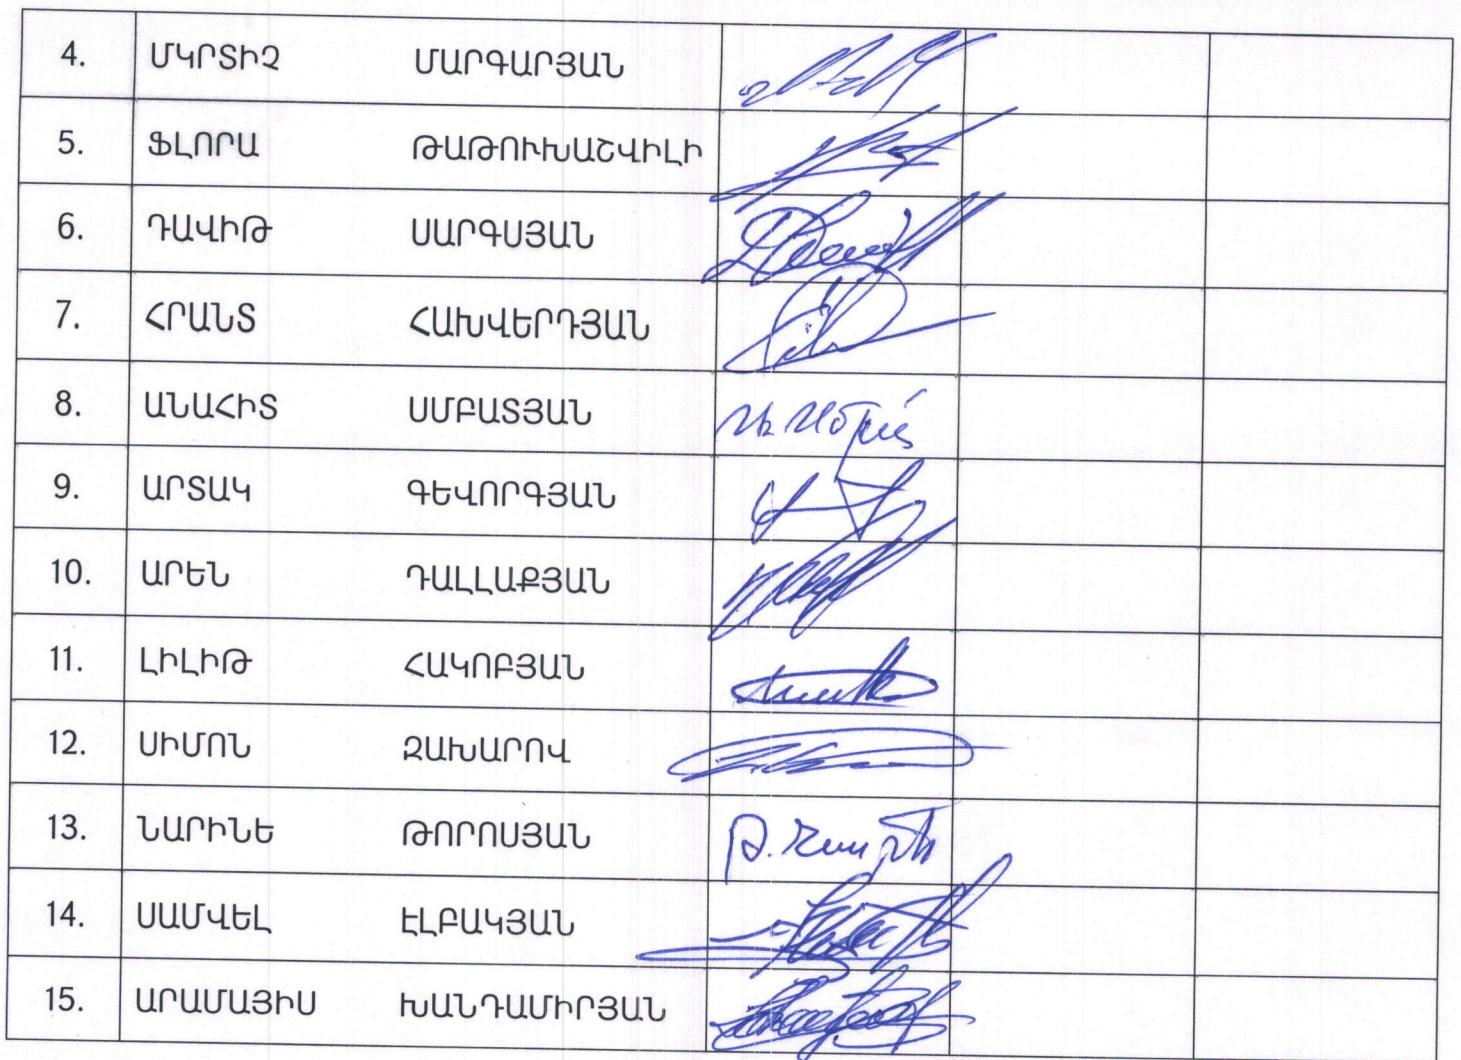 4. ՄԿՐՏԻՉ ՄԱՐԳԱՐՅԱՆ
5. ՖԼՈՐԱ ԹԱԹՈՒԽԱՇՎԻԼԻ
6. ԴԱՎԻԹ ՍԱՐԳՍՅԱՆ
7. ՀՐԱՆՏ ՀԱԽՎԵՐԴՅԱՆ
8. ԱՆԱՀԻՏ ՍՄԲԱՏՅԱՆ
9. ԱՐՏԱԿ ԳԵՎՈՐԳՅԱՆ
10. ԱՐԵՆ ԴԱԼԼԱՔՅԱՆ
11. ԼԻԼԻԹ ՀԱԿՈԲՅԱՆ
12. ՍԻՄՈՆ ԶԱԽԱՐՈՎ
13. ՆԱՐԻՆԵ ԹՈՐՈՍՅԱՆ
14. ՍԱՄՎԵԼ ԷԼԲԱԿՅԱՆ
15. ԱՐԱՄԱՅԻՍ ԽԱՆԴԱՄԻՐՅԱՆ